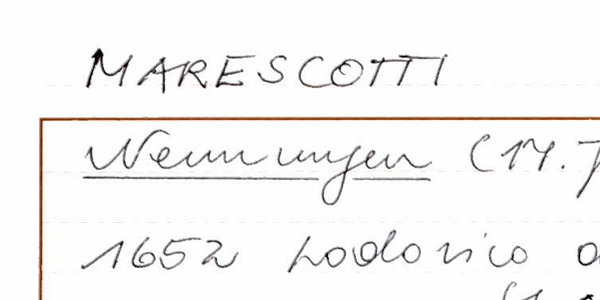 MARESCOTTI
Nennungen (17.
1652 Lodovico